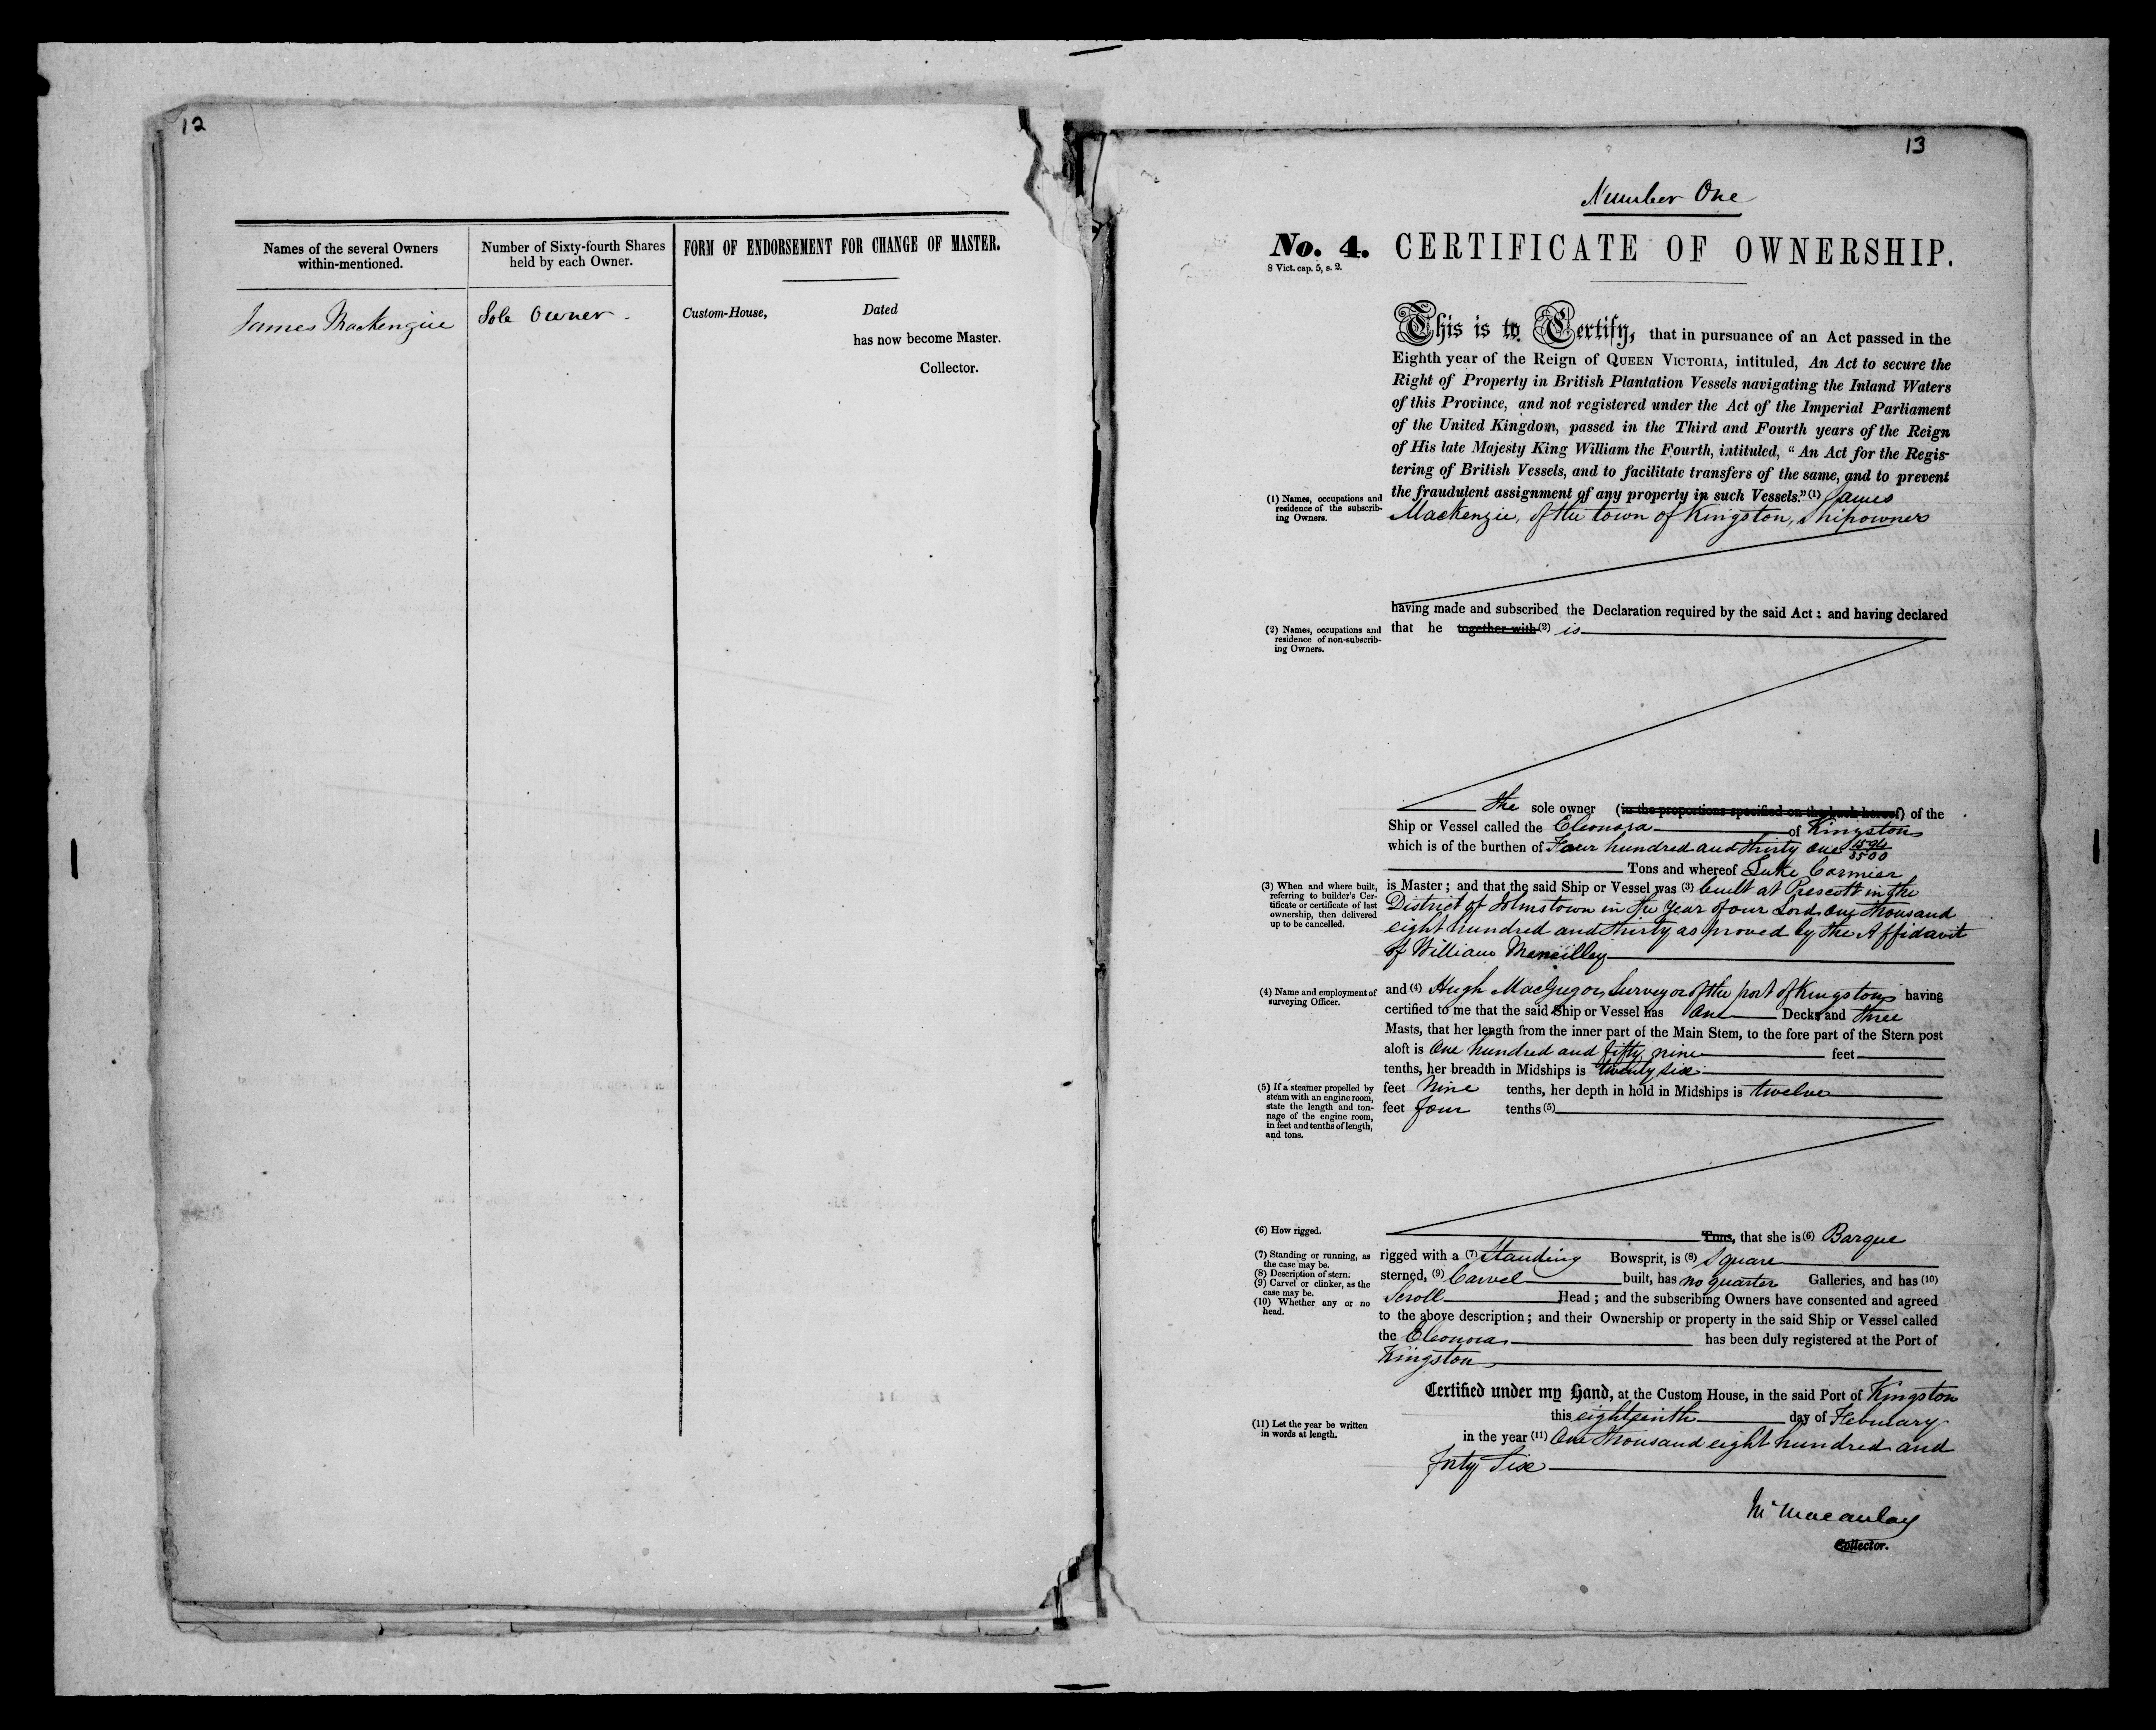 12
Names of the several Owners
within-mentioned.
Number of Sixty-fourth Shares
held by each Owner.
FORM OF ENDORSEMENT FOR CHANGE OF MASTER.
James Mackenzie
Sole Owner.
Custom-House,
Dated
has now become Master.
Collector.
13
Number One
No. 4. CERTIFICATE OF OWNERSHIP.
8 Vict. cap. 5, s. 2.
This is to Certify, that in pursuance of an Act passed in the
Eighth year of the Reign of QUEEN VICTORIA, intituled, An Act to secure the
Right of Property in British Plantation Vessels navigating the Inland Waters
of this Province, and not registered under the Act of the Imperial Parliament
of the United Kingdom, passed in the Third and Fourth years of the Reign
of His late Majesty King William the Fourth, intituled, "An Act for the Regis-
tering of British Vessels, and to facilitate transfers of the same, and to prevent
the fraudulent assignment of any property in such Vessels." (1) James
Mackenzie, of the town of Kingston, Shipowner
(1) Names, occupations and
residence of the subscrib-
ing Owners.
having made and subscribed the Declaration required by the said Act: and having declared
that he together with (2) is
(2) Names, occupations and
residence of non-subscrib-
ing Owners.
the sole owner (in the proportions specified on the back hereof) of the
Ship or Vessel called the Eleonora of Kingston
which is of the burthen of Four hundred and thirty one
3500
Tons and whereof Luke Cormier
is Master; and that the said Ship or Vessel was (3) built at Prescott in the
District of Johnstown in the year of our Lord One thousand
eight hundred and thirty as proved by the Affidavit
of William
(3) When and where built,
referring to builder's Cer-
tificate or certificate of last
ownership, then delivered
up to be cancelled.
and (4) Hugh MacGregor, Surveyor of the port of Kingston having
certified to me that the said Ship or Vessel has One Decks and three
Masts, that her length from the inner part of the Main Stem, to the fore part of the Stern post
aloft is One hundred and fifty nine feet
tenths, her breadth in Midships is twenty six
feet Nine tenths, her depth in hold in Midships is twelve
feet four tenths (5)
(4) Name and employment of
surveying Officer.
(5) If a steamer propelled by
steam with an engine room,
state the length and ton-
nage of the engine room,
in feet and tenths of length,
and tons.
Tons, that she is (6) Barque
rigged with a (7) Standing Bowsprit, is (8) Square
sterned, (9) Carvel built, has no quarter Galleries, and has (10)
Scroll Head; and the subscribing Owners have consented and agreed
to the above description; and their Ownership or property in the said Ship or Vessel called
the Eleonora has been duly registered at the Port of
Kingston
(6) How rigged.
(7) Standing or running, as
the case may be.
(8) Description of stern.
(9) Carvel or clinker, as the
case may be.
(10) Whether any or no
head.
Certified under my Hand, at the Custom House, in the said Port of Kingston
this eighteenth day of February
in the year (11) One thousand eight hundred and
forty Six
(11) Let the year be written
in words at length.
Macaulay
Collector.